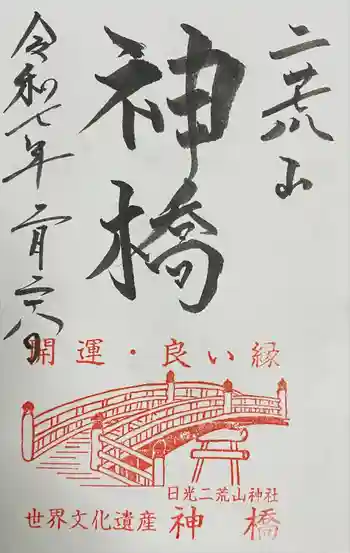 二荒山
神橋
令和七年二月二六日
開運・良い縁
日光二荒山神社
世界文化遺産 神橋